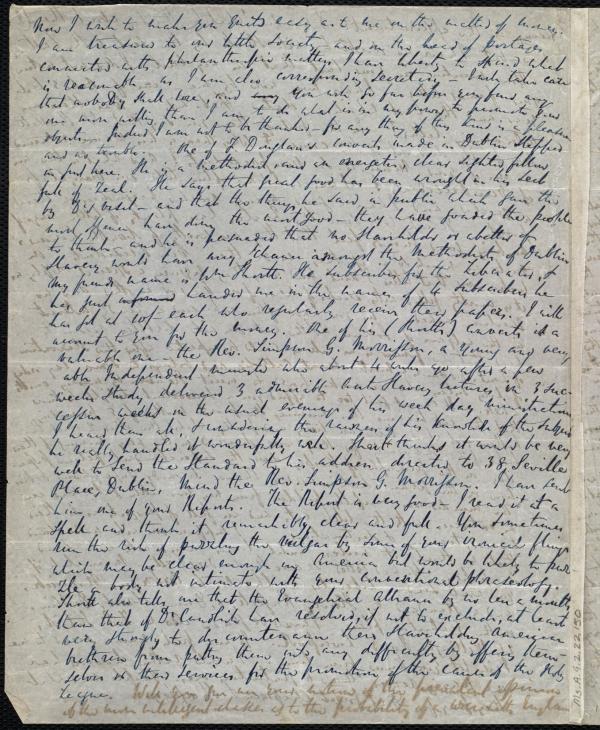 Now I wish to make you quite easy as to me on this method of money.
I am treasurer to our little society - and on the head of postages
connected with philanthropic matters I have liberty to spend what
is reasonable - as I am also corresponding secretary - I will take care
that nobody shall lose, and any you wish so far before your fund, any
one more willing than I am to do what is in my power to promote your
objects. Indeed I am not to be thanked - for any thing of this kind is a pleasure
and no trouble. One of F Douglass's converts made in Dublin stepped
in just here. He is a methodist, and an energetic, clear sighted fellow
full of zeal. He says that great good has been wrought in his sect
by D's visit - and that the things he said in public which gave the
most offence have done the most good - they have goaded the people
to think - and he is persuaded that no slaveholder or abettor of
slavery would have any chance amongst the Methodists of Dublin.
My friend's name is Wm Shortt. He subscribes for the Liberator, &
has just handed me in the names of 4 subscribers he
has got at 10/- each who regularly receive their papers. I will
account to you for the money. One of his (Shortt's) converts is a
valuable one - the Rev. Simpson G. Morrison, a young and very
able Independent minister who about 4 weeks ago after a few
weeks study delivered 3 admirable Anti Slavery lectures in 3 suc-
cessive weeks on the usual evenings of his week day ministrations
I heard them all, & considering the rawness of his knowledge of the subject
he really handled it wonderfully well. Shortt thinks it would be very
well to send the Standard to his address directed to 38, Seville
Place, Dublin, mind the Rev. Simpson G. Morrison. I have sent
him one of your Reports. The Report is very good - I read it at a
spell and think it remarkably clear and full. You sometimes
run the risk of puzzling the vulgar by some of your ironical flings
which may be clear enough in America but would be likely to puz-
zle a body not intimate with your conventional phraseology.
Shortt also tells me that the Evangelical Alliance by no less a mouth
than that of Dr Candlish have resolved, if not to exclude, at least
very strongly to discountenance their Slaveholding American
brethren from putting them into any difficulty by offering them-
selves or their services for the promotion of the cause of the Holy
League. Will you give me your notion of the prevalent opinion
of the more intelligent classes as to the probability of a war with England
Ms.A.9.2.22,50